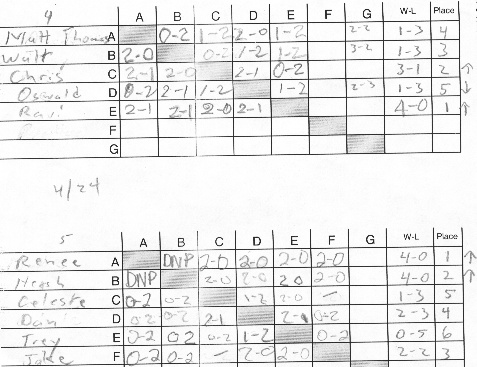 4
A B C D E F G W-L Place
Matt Thomas A 0-2 1-2 2-0 1-2 2-2 1-3 4
Walt B 2-0 0-2 1-2 1-2 3-2 1-3 3
Chris C 2-1 2-0 2-1 0-2 3-1 2 ↑
Oswald D 0-2 2-1 1-2 1-2 2-3 1-3 5 ↓
Ravi E 2-1 2-1 2-0 2-1 4-0 1 ↑
F
G
4/24
5
A B C D E F G W-L Place
Renee A DNP 2-0 2-0 2-0 2-0 4-0 1 ↑
B DNP 2-0 2-0 2 0 2-0 4-0 2 ↑
Celeste C 0-2 0-2 1-2 2-0 – 1-3 5
Dan D 0-2 0-2 2-1 2-1 0-2 2-3 4
Trey E 0-2 0 2 0-2 1-2 0-2 0-5 6
Jake F 0-2 0-2 – 2-0 2-0 2-2 3